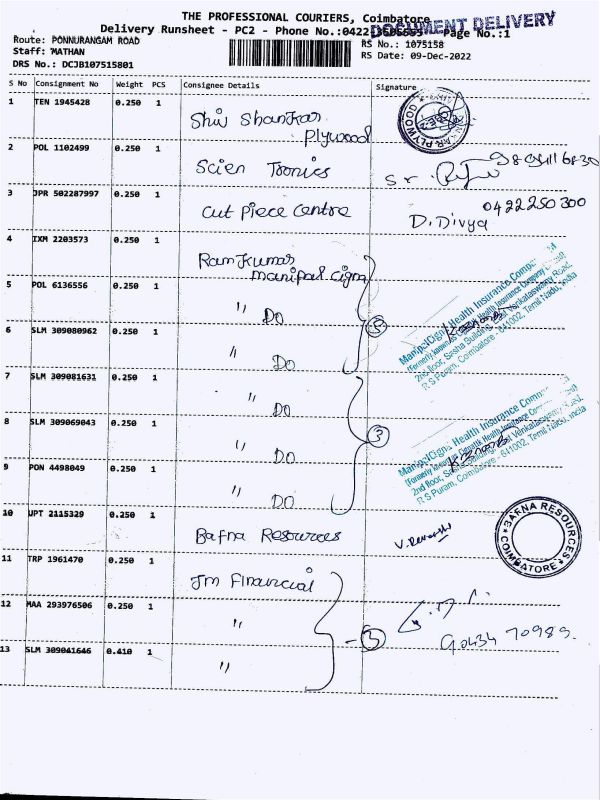 THE PROFESSIONAL COURIERS, Coimbatore
DOCUMENT DELIVERY
Delivery Runsheet - PC2 - Phone No.:0422 Page No.:1
Route: PONNURANGAM ROAD
RS No.: 1075158
Staff: MATHAN
RS Date: 09-Dec-2022
DRS No.: DCJB107515801
S No Consignment No Weight PCS Consignee Details Signature
1 TEN 1945428 0.250 1 Shiv Shankar
Plywood
2 POL 1102499 0.250 1 Scien Tronics
3 JPR 502287997 0.250 1 Cut Piece Centre D.Divya 0422250300
4 IXM 2203573 0.250 1 Ramkumar
Manipal Cigna
5 POL 6136556 0.250 1 " Do
6 SLM 309080962 0.250 1 " Do
ManipalCigna Health Insurance Company
2nd floor, Sesha Building, East Venkataswamy Road,
R S Puram, Coimbatore - 641002, Tamil Nadu, India
7 SLM 309081631 0.250 1 " Do
8 SLM 309069043 0.250 1 " Do
3
9 PON 4498049 0.250 1 " Do
ManipalCigna Health Insurance Company
2nd floor, Sesha Building, East Venkataswamy Road,
R S Puram, Coimbatore - 641002, Tamil Nadu, India
10 UPT 2115329 0.250 1 Bafna Resources
BAFNA RESOURCES
COIMBATORE
11 TRP 1961470 0.250 1 Jm Financial
12 MAA 293976506 0.250 1 "
13 SLM 309041646 0.410 1 "
3
90434 70989.